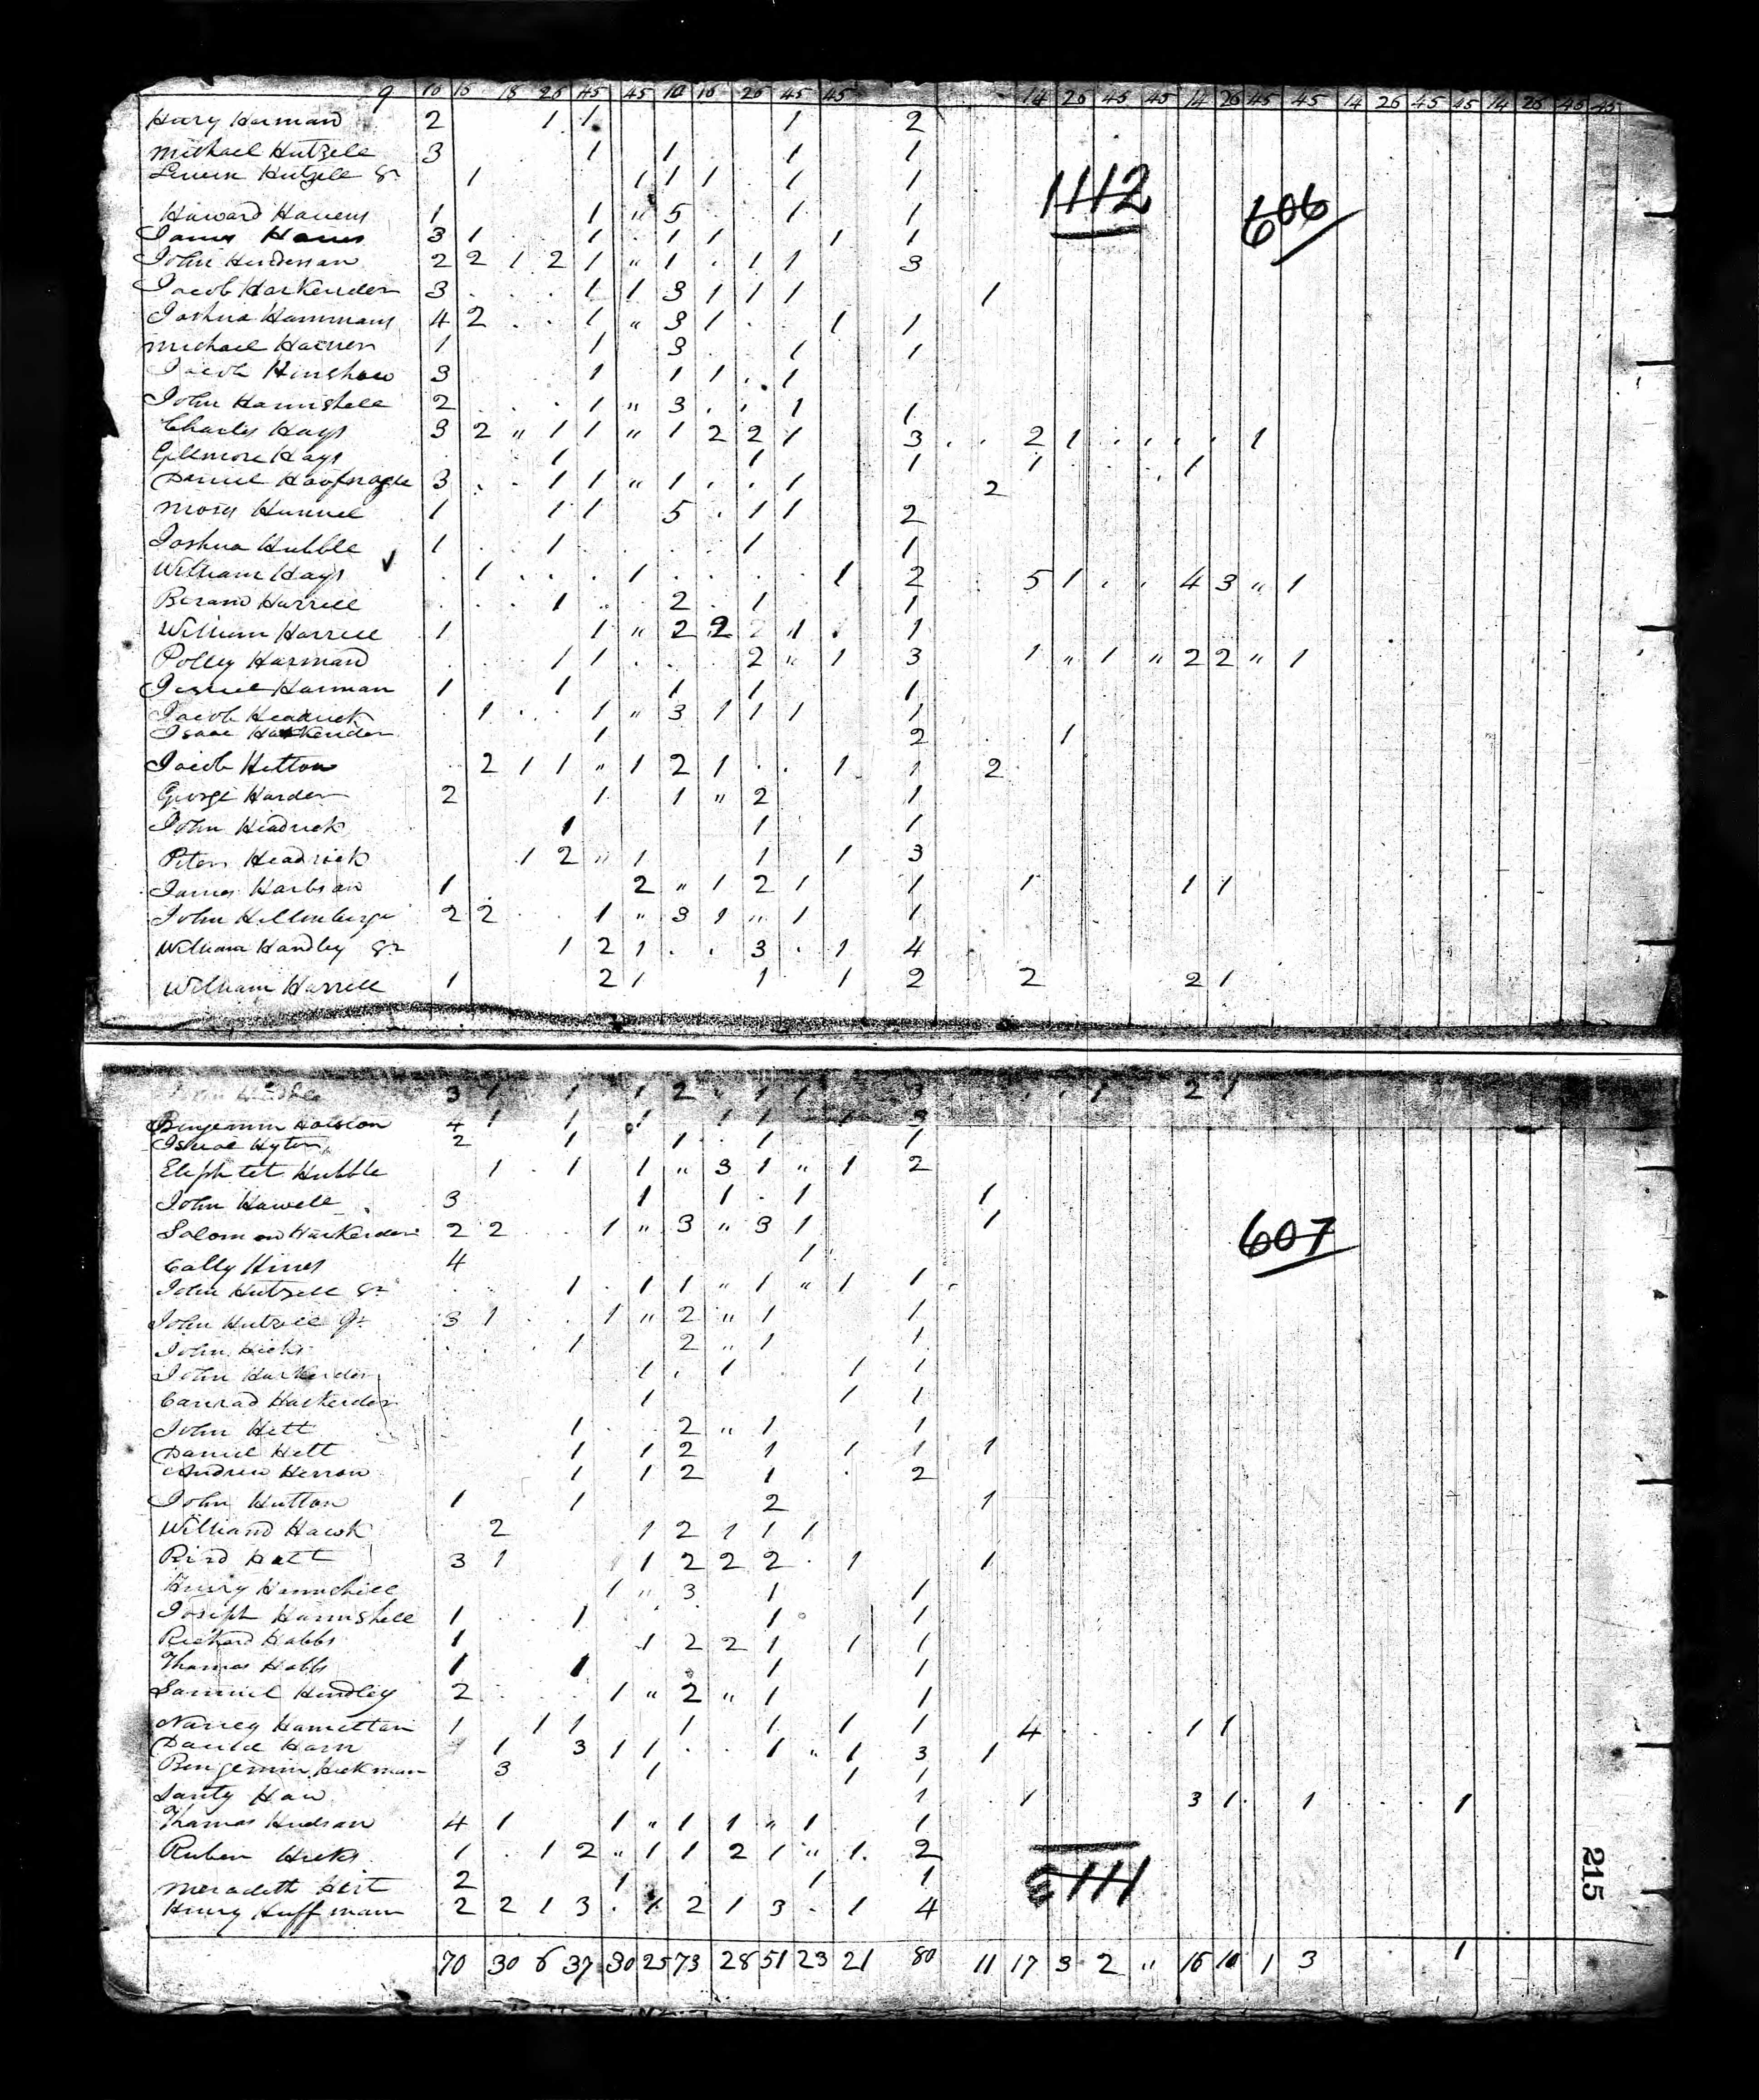 9 10 16 18 26 45 45 10 16 26 45 45 14 26 45 45 14 26 45 45 14 26 45 45 14 26 45 45
Henry Harman 2 1 1 1 2
Michael Hutzell 3 1 1 1 1
Hutzell Sr 1 1 1 1 1 1
1112
606
Haward Havens 1 1 " 5 1 1
James 3 1 1 1 1 1 1
John Henderson 2 2 1 2 1 " 1 1 1 3
Jacob Harkender 3 1 1 3 1 1 1 1
Joshua Hammans 4 2 1 " 3 1 1 1
Michael 1 1 3 1 1
Jacob Henshaw 3 1 1 1 1
John Hannshell 2 1 " 3 1 1
Charles Hays 3 2 " 1 1 " 1 2 2 1 3 2 1 1
Gillmore Hays 1 1 1 1 1
Daniel Hoofnagle 3 1 1 " 1 1 2
Moses Hunnel 1 1 1 5 1 1 2
Joshua Hubble 1 1 1 1
William Hays 1 1 1 2 5 1 4 3 " 1
Harrell 1 2 1 1
William Harrell 1 1 " 2 2 2 " 1 1
Polley Harman 1 1 2 " 1 3 1 " 1 " 2 2 " 1
Harman 1 1 1 1 1
Jacob Headrick 1 1 " 3 1 1 1 1
Isaac Harkender 1 2 1
Jacob Hetton 2 1 1 " 1 2 1 1 1 2
George Harder 2 1 1 " 2 1
John Headrick 1 1 1
Peter Headrick 1 2 " 1 1 1 3
James Harbson 1 2 " 1 2 1 1 1 1 1
John Hellenburge 2 2 1 " 3 1 " 1 1
William Handley Sr 1 2 1 3 1 4
William Harrell 1 2 1 1 1 2 2 2 1
3 1 1 1 2 1 1 3 1 2 1
Benjemin Holston 4 1 1 1 1 1 1 3
Hyten 2 1 1 1 1
Eliphlet Hubble 1 1 1 " 3 1 " 1 2
John Howell 3 1 1 1 1
Solomon Harkender 2 2 1 " 3 " 3 1 1
607
Cally Hines 4 1
John Hutzell Sr 1 1 1 " 1 " 1 1
John Hutzell Jr 3 1 1 " 2 " 1 1
John Hicks 1 2 " 1 1
John Harkender 1 1 1 1
Conrad Harkender 1 1 1
John Hett 1 2 " 1 1
Daniel Hett 1 1 2 1 1 1 1
Andrew Herron 1 1 2 1 2
John Hutton 1 1 2 1
William Hawk 2 1 2 1 1 1
Bird Hatt 3 1 1 2 2 2 1 1
Henry Hannshell 1 " 3 1 1
Joseph Hannshell 1 1 1 1
Richard Hobbs 1 1 2 2 1 1 1
Thomas Hobbs 1 1 1 1
Samuel Hendley 2 1 " 2 " 1 1
Nancy Hamelton 1 1 1 1 1 1 1 4 1 1
Horn 1 3 1 1 1 " 1 3 1
Benjemin Hickman 3 1 1 1
Haw 1 1 3 1 1 1
Thomas Hudson 4 1 1 " 1 1 " 1 1
Ruben Hicks 1 1 2 " 1 1 2 1 " 1 2
Meradeth Hert 2 1 1 1
Henry Huffman 2 2 1 3 1 2 1 3 1 4
70 30 6 37 30 25 73 28 51 23 21 80 11 17 3 2 " 16 10 1 3 1
215